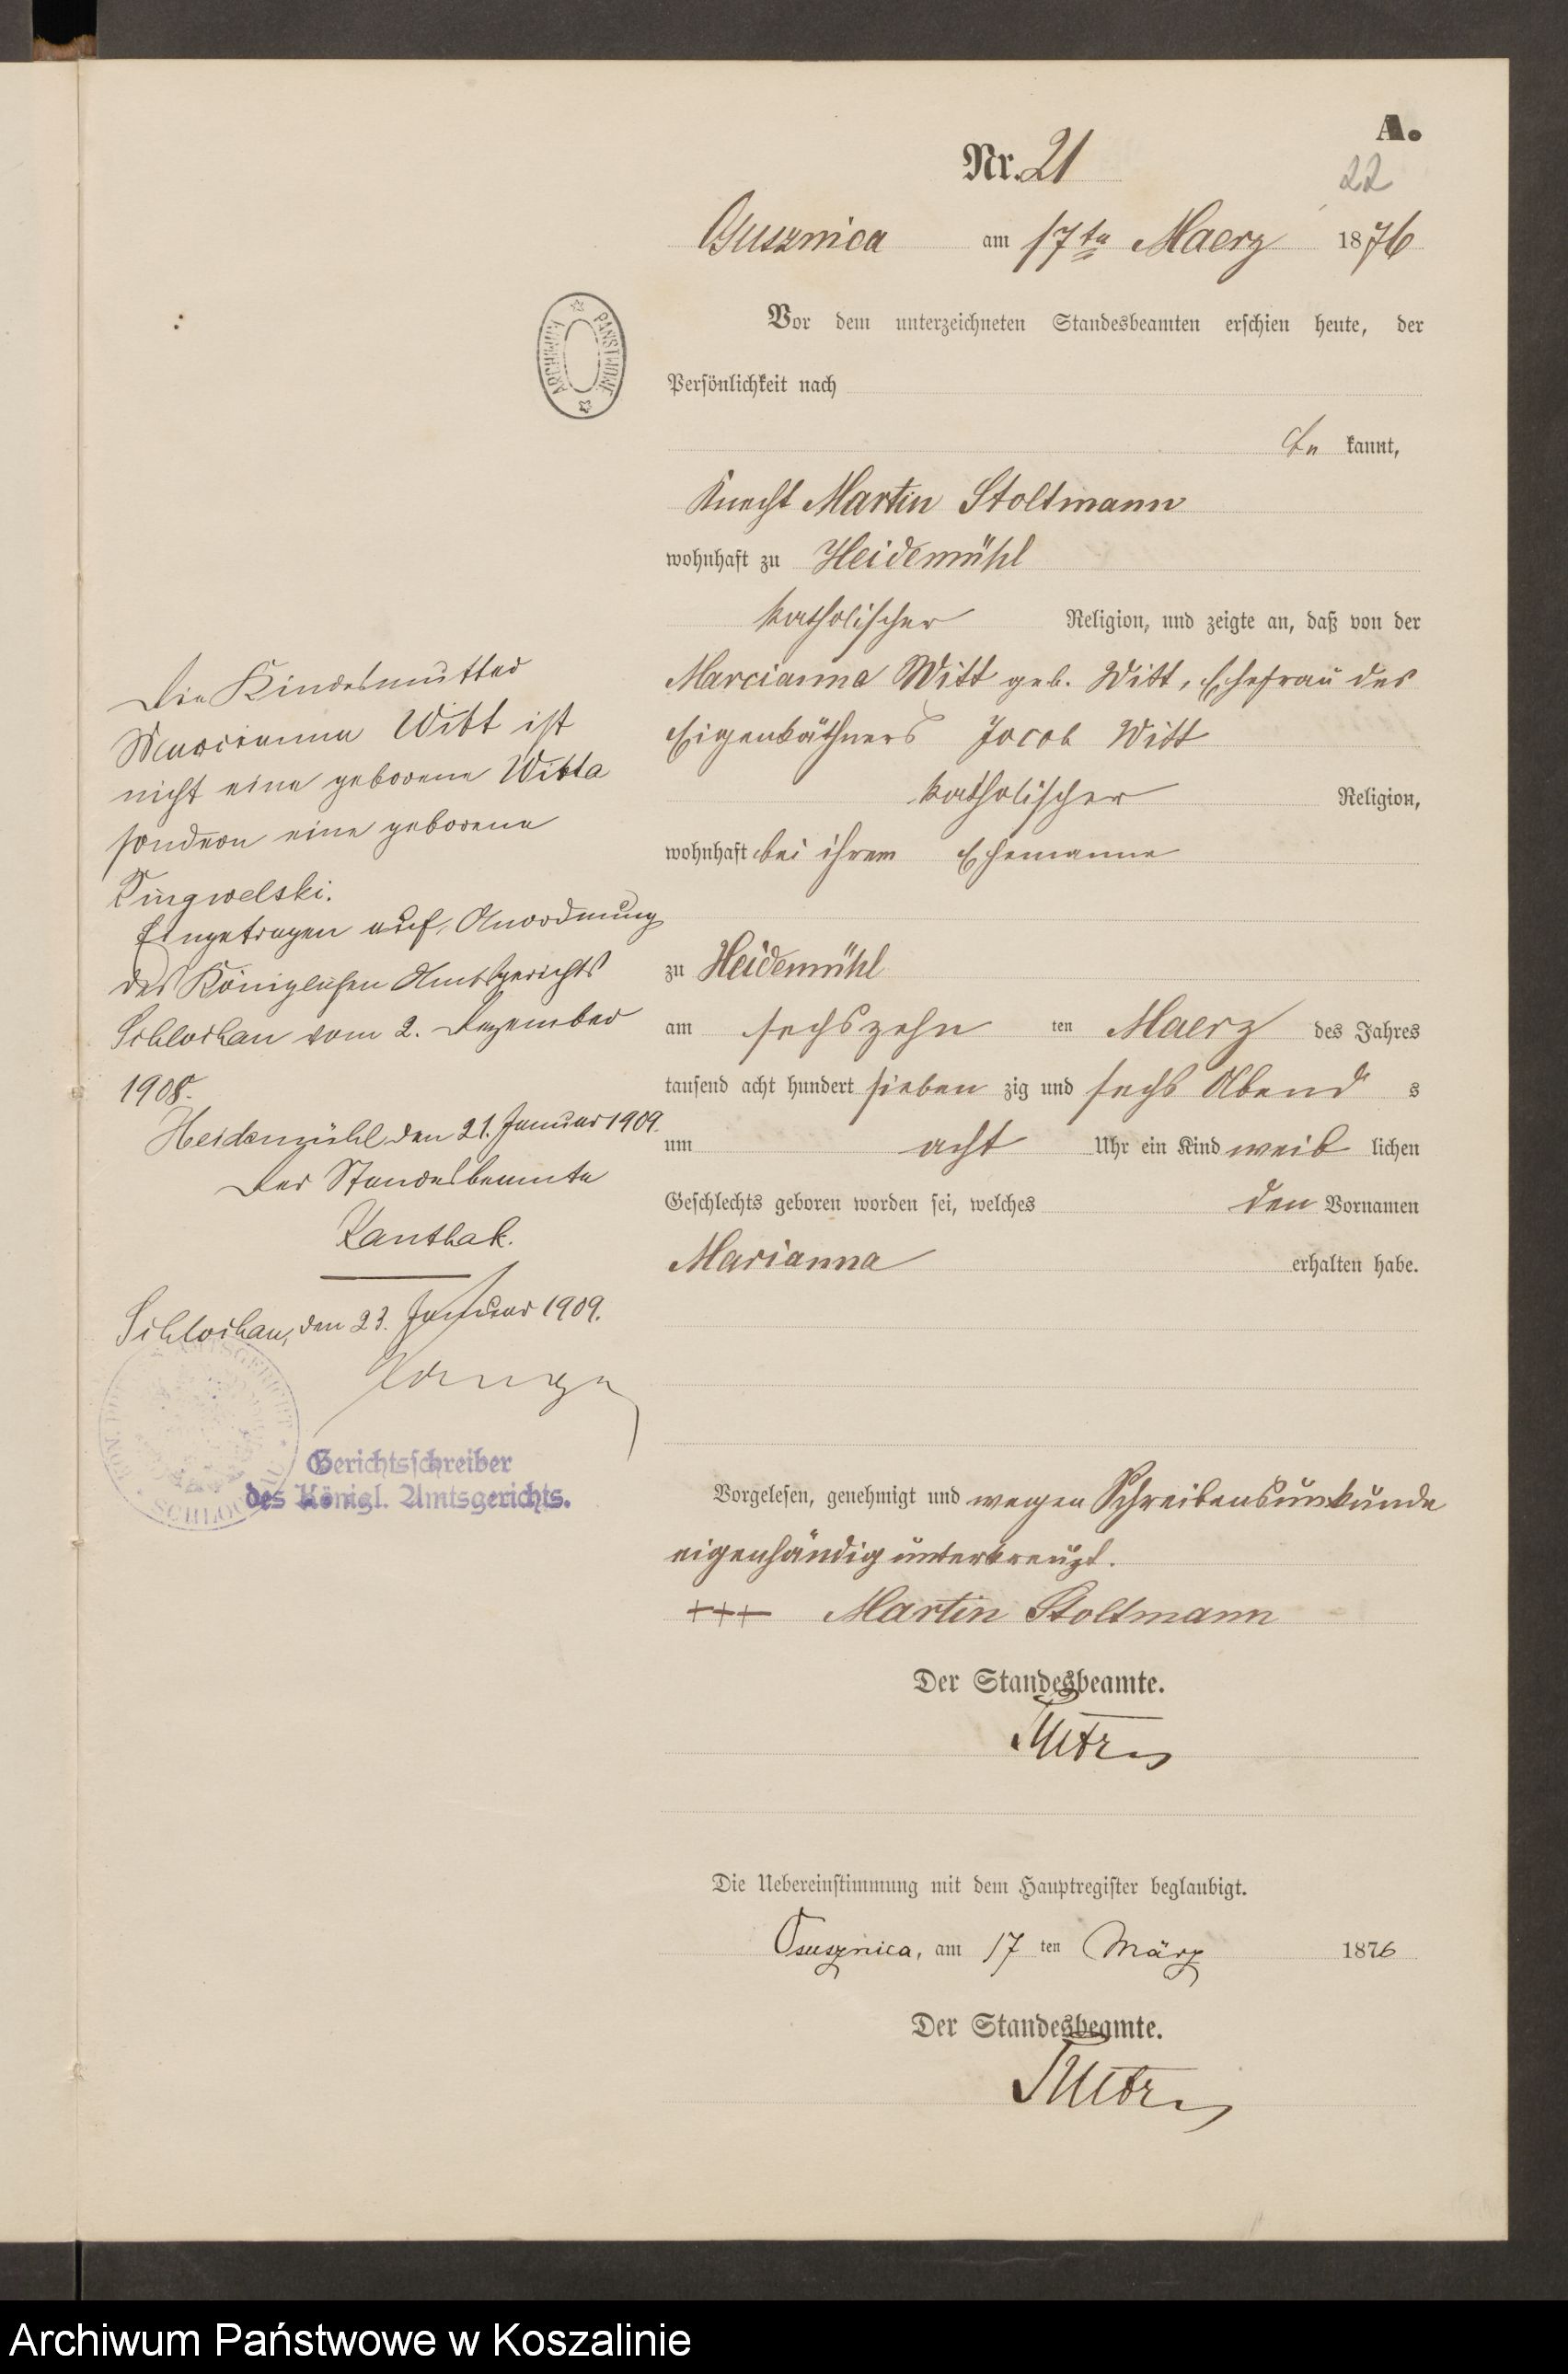 A.
Nr. 21
22
Osusznica am 17ten Maerz 1876
Vor dem unterzeichneten Standesbeamten erschien heute, der
Persönlichkeit nach
be kannt,
Knecht Martin Stoltmann
wohnhaft zu Heidemühl
katholischer Religion, und zeigte an, daß von der
Marcianna Witt geb. Witt, Ehefrau des
Eigenkäthners Jacob Witt
katholischer Religion,
wohnhaft bei ihrem Ehemanne
zu Heidemühl
am sechszehn ten Maerz des Jahres
tausend acht hundert sieben zig und sechs Abend s
um acht Uhr ein Kind weib lichen
Geschlechts geboren worden sei, welches den Vornamen
Marianna erhalten habe.
Vorgelesen, genehmigt und wegen Schreibensunkunde
eigenhändig unterkreuzt.
+++ Martin Stoltmann
Der Standesbeamte.
Die Uebereinstimmung mit dem Hauptregister beglaubigt.
Osusznica, am 17 ten März 1876
Der Standesbeamte.
Die Kindesmutter
Marcianna Witt ist
nicht eine geborene Witt
sondern eine geborene
Eingetragen auf Anordnung
des Königlichen Amtsgerichts
Schlochau vom 2. Dezember
1908.
Heidemühl den 21. Januar 1909.
Der Standesbeamte
Kanthak.
Schlochau, den 23. Januar 1909.
Gerichtsschreiber
des Königl. Amtsgerichts.
ARCHIWUM PAŃSTWOWE
Archiwum Państwowe w Koszalinie